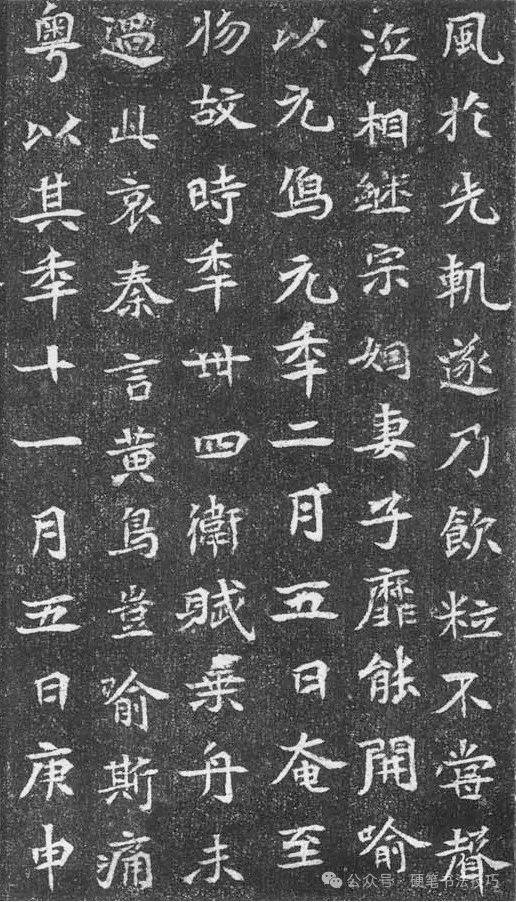 風於先軌遂乃飲粒不嘗聲
泣相継宗姻妻子靡能開喻
以元象元秊二月五日奄至
物故時秊卅四衛賦乗舟未
過此哀秦言黄鳥豈喻斯痛
粤以其秊十一月五日庚申
公众号 · 硬笔书法技巧